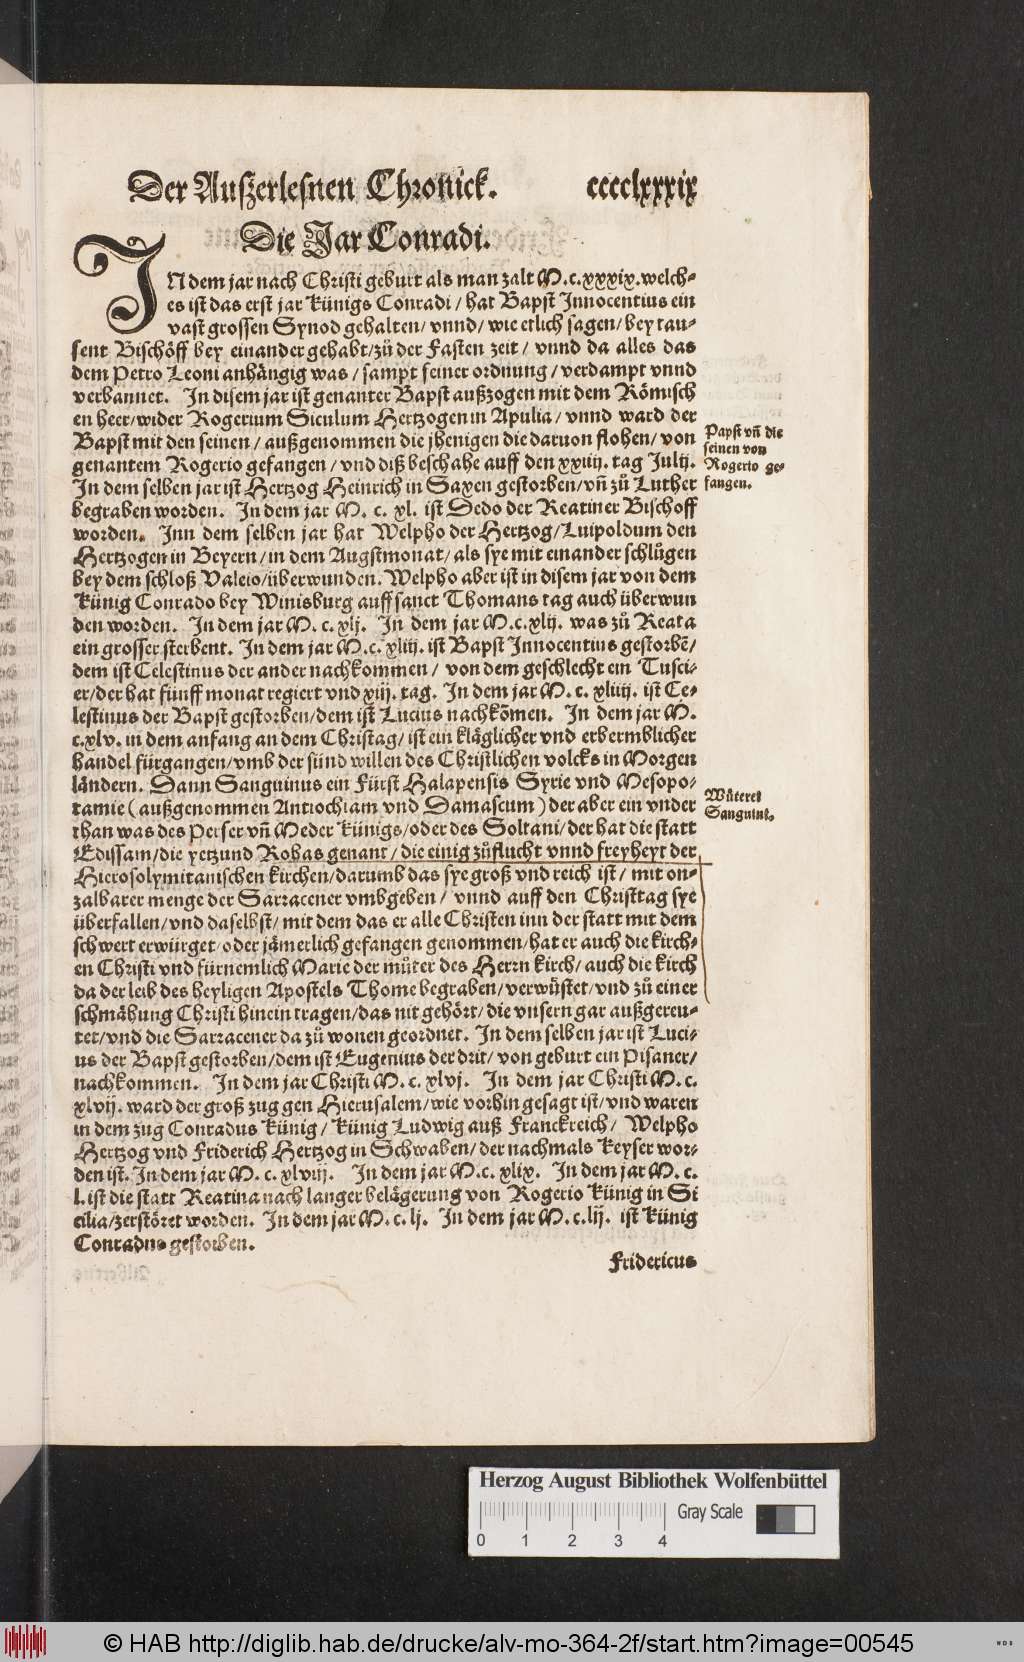 Der Außerlesnen Chronick. cccclxxxix
Die Jar Conradi.
IN dem jar nach Christi geburt als man zalt M.c.xxxix.welch⸗
es ist das erst jar Künigs Conradi / hat Bapst Innocentius ein
vast grossen Synod gehalten / vnnd / wie etlich sagen / bey tau⸗
sent Bischöff bey einander gehabt / zů der Fasten zeit / vnnd da alles das
dem Petro Leoni anhängig was / sampt seiner ordnung / verdampt vnnd
verbannet. In disem jar ist genanter Bapst außzogen mit dem Römisch
en heer / wider Rogerium Siculum Hertzogen in Apulia / vnnd ward der
Bapst mit den seinen / außgenommen die jhenigen die daruon flohen / von
genantem Rogerio gefangen / vnd diß beschahe auff den xxiiij. tag Julij.
In dem selben jar ist Hertzog Heinrich in Saxen gestorben / vñ zů Luther
begraben worden. In dem jar M. c. xl. ist Dedo der Reatiner Bischoff
worden. Inn dem selben jar hat Welpho der Hertzog / Luipoldum den
Hertzogen in Beyern / in dem Augstmonat / als sye mit einander schlůgen
bey dem schloß Valeio / überwunden. Welpho aber ist in disem jar von dem
Künig Conrado bey Winisburg auff sanct Thomans tag auch überwun
den worden. In dem jar M. c. xlj. In dem jar M.c.xlij. was zů Reata
ein grosser sterbent. In dem jar M.c. xliij. ist Bapst Innocentius gestorbē /
dem ist Celestinus der ander nachkommen / von dem geschlecht ein Tusci⸗
er / der hat fünff monat regiert vnd xiij. tag. In dem jar M. c. xliiij. ist Ce⸗
lestinus der Bapst gestorben / dem ist Lucius nachkõmen. In dem jar M.
c.xlv. in dem anfang an dem Christag / ist ein kläglicher vnd erbermblicher
handel fürgangen / vmb der sünd willen des Christlichen volcks in Morgen
ländern. Dann Sanguinus ein Fürst Halapensis Syrie vnd Mesopo⸗
tamie ( außgenommen Antiochiam vnd Damascum ) der aber ein vnder
than was des Perser vñ Meder Künigs / oder des Soltani / der hat die statt
Edissam / die yetzund Rohas genant / die einig zůflucht vnnd freyheyt der
Hierosolymitanischen kirchen / darumb das sye groß vnd reich ist / mit on⸗
zalbarer menge der Sarracener vmbgeben / vnnd auff den Christtag sye
überfallen / vnd daselbst / mit dem das er alle Christen inn der statt mit dem
schwert erwürget / oder jämerlich gefangen genommen / hat er auch die kirch⸗
en Christi vnd fürnemlich Marie der můter des Herrn kirch / auch die kirch
da der leib des heyligen Apostels Thome begraben / verwüstet / vnd zů einer
schmähung Christi hinein tragen / das nit gehört / die vnsern gar außgereu⸗
tet / vnd die Sarracener da zů wonen geordnet. In dem selben jar ist Luci⸗
us der Bapst gestorben / dem ist Eugenius der drit / von geburt ein Pisaner /
nachkommen. In dem jar Christi M. c. xlvj. In dem jar Christi M. c.
xlvij. ward der groß zug gen Hierusalem / wie vorhin gesagt ist / vnd waren
in dem zug Conradus Künig / Künig Ludwig auß Franckreich / Welpho
Hertzog vnd Friderich Hertzog in Schwaben / der nachmals Keyser wor⸗
den ist. In dem jar M. c. xlviij. In dem jar M.c. xlix. In dem jar M. c.
l. ist die statt Reatina nach langer belägerung von Rogerio Künig in Si
cilia / zerstöret worden. In dem jar M. c. lj. In dem jar M.c.lij. ist Künig
Conradus gestorben.
Fridericus
Papst vñ die
seinen von
Rogerio ge⸗
fangen.
Wüterei
Sanguini.
Herzog August Bibliothek Wolfenbüttel
Gray Scale
0 1 2 3 4
© HAB http://diglib.hab.de/drucke/alv-mo-364-2f/start.htm?image=00545